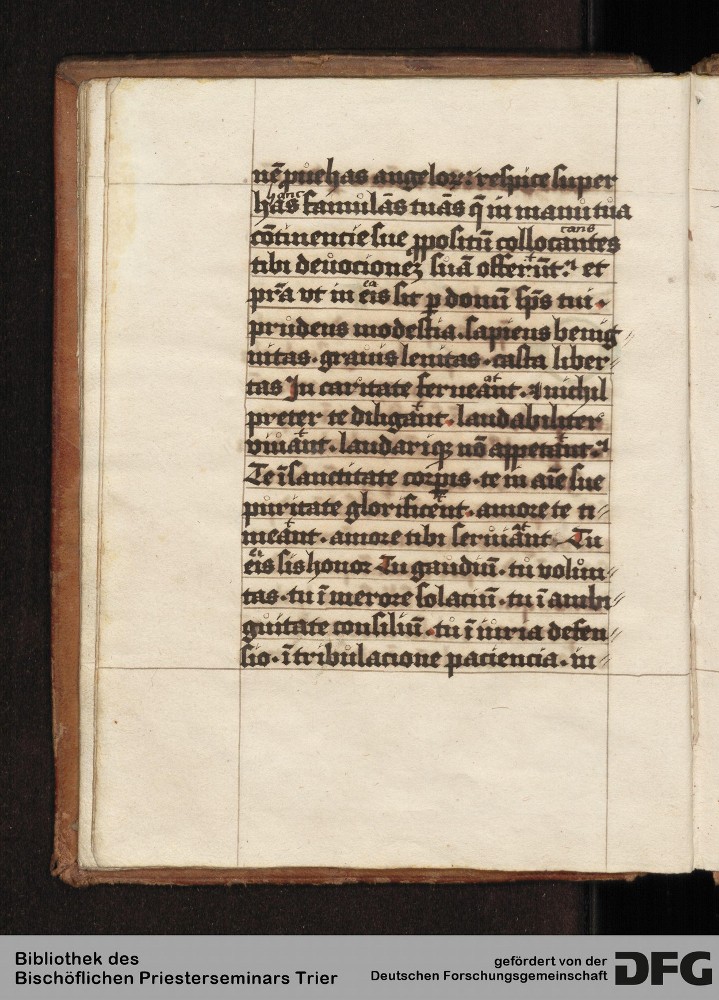 nē puehas angeloꝝ: respice super
hanc
has famulās tuās q̄ in manu tua
cans
cōtinencie sue ꝓpositū collocantes
tibi deuocioneȝ suā offerūt. et
ea
pr̄a vt in eis sit p donū sp̄s tui.
prudens modestia. sapiens benig
nitas. grauis lenitas. casta liber
tas In caritate ferueant. ⁊ nichil
preter te diligant. laudabiliter
viuant. laudariqȝ nō appetant. ⁊
Te ī sanctitate corꝑis. te in aīe sue
puritate glorificent. amore te ti
meant. amore tibi seruiant. Tu
ei
eis sis honor Tu gaudiū. tu volun
tas. tu ī merore solaciū. tu ī ambi
guitate consiliū. tu ī iuria defen
sio. ī tribulacione paciencia. in
Bibliothek des
Bischöflichen Priesterseminars Trier
gefördert von der
Deutschen Forschungsgemeinschaft
DFG